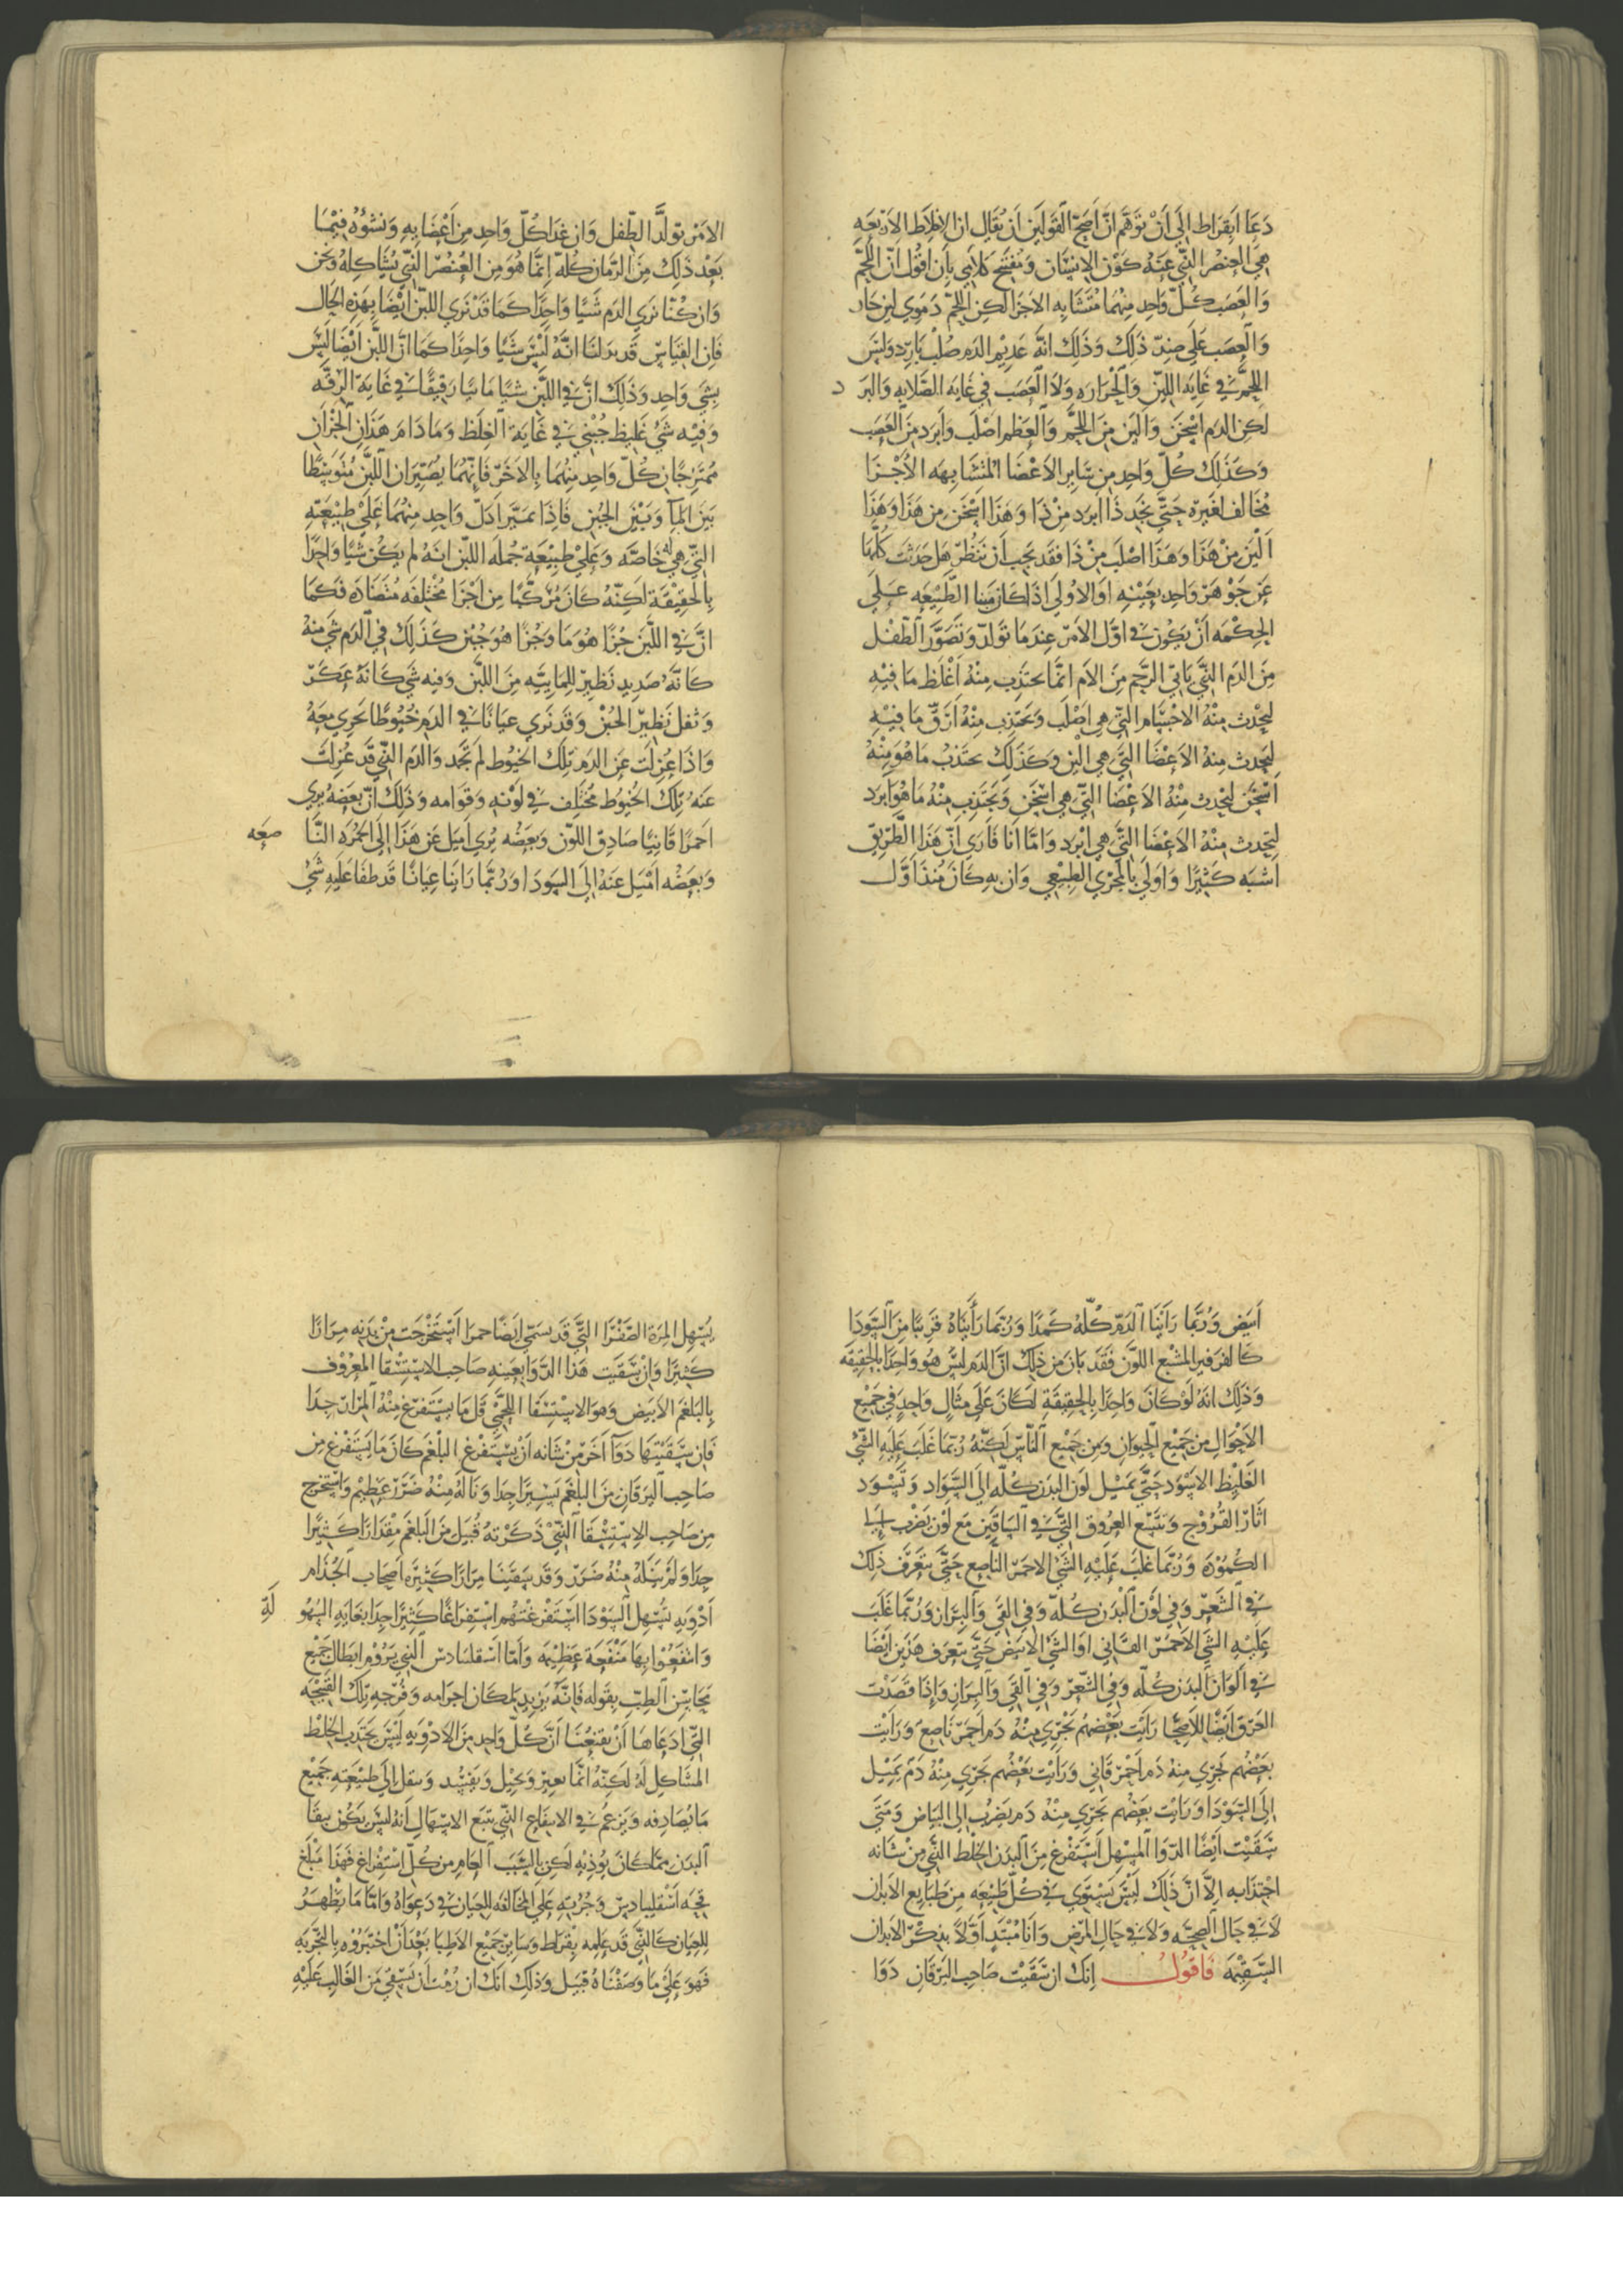 دَعَا اَبقراط الَى اَنْ تَوَهَّمَ انَّ اَصَحّ القَولَين اَن يُقَال ان الاخلاط الاَربَعَه
هيَ العنصُر الذّي عَنهُ كوْن الاِنسَان وَنفتتح كلامي بِان اقُول انّ اللَّحمَ
وَالعَصَب كُلّ وَاحِد مِنهُمَا مُتَشَابه الاجَزَا لكن اللحمّ دَمَوي لين حَار
وَالعَصَب عَلَى ضِدّ ذَلك وَذلكَ انهُ عَديم الدَم صُلب بَارِد وَليسَ
اللحمُ فيْ غَايَه اللينّ وَالحَرَارَه وَلاَ العَصَب في غايَه الصّلابه وَالبَر د
لَكِن الدَم اسْخَن وَاليَن مِنَ اللَّحم وَالعَظم اصْلَب وَاَبرَد مِنَ العَصَب
وَكذَلك كلّ وَاحِد مِن سَاير الاَعْضَا المتشَابهَه الاَجْزَا
مُخَالف لغَيرَه حَتَّى نَجد ذَا اَبرَد مِنْ ذَا وَهَذا اسْخَن مِن هَذَا وَهَذَا
اَليَن مِنْ هَذَا وَهَذَا اصْلَب مِنْ ذَا فقَد يَجب اَن نَنظُر هَل حَدَثت كلّها
عَن جَوْهَر وَاحِد بعَيْنهِ اَو الاَولَى اذَا كانَ مَبنا الطَّبيعَه عَلَى
الحِكْمَه اَنْ يَكُون فيْ اوَّل الاَمر عِندَمَا تَوَلد وَتصَوَّرَ الطّفْل
مِنَ الدَم الذَّي يَاتي الرَّحم مِنَ الاُم انمّا يجتذِب مِنْهُ اَغْلَظ مَا فيْهِ
ليَحْدث مِنْهُ الاجْسَام التّي هي اَصْلَب وَيجَتذِب مِنْهُ اَرَقّ مَا فيْهِ
لتَحدث مِنْهُ الاَعْضَا التَّي هي اليَن وَكذَلك يجتذبُ مَا هُوَ مِنْهُ
اسْخَن ليَحدث مِنْهُ الاَعْضَا التّي هي اسْخَن وَيَجتَذِب مِنْهُ مَا هُوَ ابرَد
لتَحدث مِنْهُ الاَعْضَا التّي هي ابرَد وَامّا اَنا فَاَرَى انّ هَذَا الطّريق
اشبَه كثيْرًا وَاوَلَى بالمَجْرَى الطبيْعي وَان بهِ كانَ مُنذ اوّل
الاَمرْ تولَّد الطّفل وَان غذا كُلّ وَاحِد مِن اَعْضَايهِ وَنشؤُهُ فيْمَا
بَعْد ذلِكَ مِنَ الزّمان كلّهْ اِنمَّا هُوَ مِن العُنصُر الذّي يُشَاكلهُ وَنحَن
وَان كنْا نرَى الدَم شَيًا وَاحِدًا كَمَا قَدْ نَرَى اللبّن ايْضًا بهَذِهِ الحَال
فاِن القيَاسّ قَد يَدلنَا انّهُ ليْسَ شَيًا وَاحِدًا كمَا انّ اللبَّن اَيْضًا ليَسَ
بِشَي وَاحِد وَذلكَ انّ فيْ اللبّن شيًا مَائيًا رَقيقًا فيْ غَايَة الرقّه
وَفيْه شَيْ غَليظ جُبْني فيْ غَايَة الغلظ وَمَا دَامَ هَذَانِ الجُزْانِ
مُمتزجَان كُلّ وَاحِد مِنْهُمَا بِالاَخَر فَانهمَا يُصَيّران اللَّبن مُتوَسِطًا
بَيَن المَآ وَبيْن الجبن فاذَا تميَّزا دَلّ وَاحِد مِنهُمَا عَليْ طبيْعَتهِ
التّي هي له خَاصّه وَعَليْ طبيْعَة جُملَه اللبّن انهُ لم يكُن شَيًا وَاحِدًا
بِالحَقيقَة لَكنّهُ كانَ مُرَكّبًا مِن اَجْزَا مختْلفَه مُتضَادَه فَكمَا
انَّ فيْ اللَّبَن جُزءًا هُوَ مَا وَجُزًا هُوَ جُبْن كذَلِكَ في الدَم شَي مِنْهُ
كانّهُ صَديد نظير للمَايَيَّه مِنَ اللَّبن وَفيه شي كانهُ عَكَر
وَثفل نظيرْ الجُبن وَقدَ نَرَى عيَانًا في الدَم خيُوطًا تجَري مَعَهُ
وَاذَا عُزلت عَن الدَم تلكَ الخيُوط لم تجَمد وَالدَم الذّي قَد عُزلتَ
عَنهُ تلكَ الخيُوط مختلف فيْ لوْنهِ وَقوَامه وَذلكَ انّ بَعضَه يُرى
احَمرًا قَانيًا صَادِقَ اللّون وَبَعضُه يُرَى اَميَل عَن هَذَا اِلَى الحُمْرَه النَّا صعَه
وَبعَضُه امْيَل عَنهُ الَى السَودَا وَرُبمَّا رَايْنَا عِيانًا قَد طفَا عَليَه شيْ
اَبيَض وَرُبَّمَا رَايْنَا الدَمّ كلّهُ كَمدًا وَرُبّمَا رَاَيْنَاهُ قَريبًا مِنَ السَّودَا
كالفرفير المُشبَع اللوْن فَقَد بَانَ مِن ذلِكَ انّ الدَم ليْسَ هُوَ وَاحِدًا بالحَقيقَه
وَذلِكَ انهُ لَوْ كانَ وَاحِدًا بِالحقيقَة لكانَ عَلَى مثَالٍ وَاحِدٍ فيْ جَميْع
الاحْوَال مِن جَميْع الحيَوان وَمِن جَميْع النَّاس لكنَّهُ رُبّمَا غلَبَ عَليَه الشّيْ
الغَليْظ الاسْوَد حَتَّى يميْل لوَن البدَن كلّه الَى السّوَاد وَتسْوَد
اثَارّ القرُوْح وَتَتَّسِع العرُوق التَّي في السَاقَين مَع لوَن يَضْرب الى
الكمُوْدَه وَرُبّمَا غلبَ عَليْهِ الشّيْ الاَحمَر النَّاصِع حَتَّى يتَعَرَّف ذَلكَ
فيْ الشّعَرْ وَفي لوَن البْدَن كلّه وَفي القيَ وَالبرَاز وَرُبّمَا غَلبَ
عَليَهِ الشّي الاَحمَر القَاني اَو الشّيْ الاَبيَض حَتَّى يتعَرَف هَذَين ايْضًا
فيْ اَلوَان البدَن كلّه وَفي الشّعَر وَفي القيَ وَالبرَاز وَاِذَا فصَدَت
العَرق ايْضًا للاَصِحَّا رَايْت بعَضهُم يَجْري مِنْهُ دَم احَمرَ نَاصِع وَرَاَيْت
بعَضهُم يَجري مِنْهُ دَم احَمرَ قَاني وَرَايْت بَعْضهُم يَجري مِنْهُ دَم يميْل
الَى السّوَدَا وَرَايْت بعَضْهُم يَجري مِنهُ دَم يَضرُب الى البيَاض وَمَتَى
سَقيْت ايْضًا الدّوَا المُسْهل اسْتَفرغ مِنَ البدَن الخلط الذّي مِن شَانه
اجتذَابه الاّ انّ ذلكَ ليْسَ يَستوي في كُلّ طَبيعَه مِن طَبَايع الاَبدَان
لاَ في حَال الصِحّه وَلاَ في حَال المَرَض وَاَنَا مُبْتَدٍ اَوَّلاً بذكر الاَبدَان
السّقيْمَه فاقولُ انكَ ان سَقيْت صَاحِب اليَرَقَان دَوَا
يُسْهل المِرّة الصّفْرَا التَّي قد يسَمّى ايَضًا حمرَا اسْتخْرَجَت مِن بدَنه مِرَارًا
كثيرًا وَاِنْ سَقيَت هَذَا الدَّوَا بعَينه صَاحِب الاستسْقا المَعْرُوْف
بِالبَلغَم الاَبيَض وَهوَ الاسْتسْقَا اللحمي قلّ مَا يَستَفرغ مِنْهُ المَرَارّ جِدَا
فَان سَقيْتهَا دَوَآ آخَر مِنْ شَانه اَن يسْتَفْرغ البلغَم كانَ مَا يَستَفْرغ مِن
صَاحِب اليَرقَان مِنَ البلغَم يسَيرًا جِدًا وَنَالهُ مِنْهُ ضَرَر عَظيْم وَاسْتخرج
مِن صَاحِب الاِسْتِسْقَا الذّيْ ذكرْتهُ قُبيَل مِنَ البلغَم مقْدَارًا كثيْرًا
جِدَا وَلَم يَنَلهُ مِنْهُ ضَرَر وَقَد سَقيْنَا مِرَارًا كثيْرَه اصَحاب الجُذَام
اَدْويَه تُسْهل السوْدَا اسْتفرغتهُم اسْتفراغًا كثيرًا جِدَا بغَايَه السُهُو لَهِ
وَانتفَعُوْا بهَا مَنْفَعَة عَظيْمَه وَامّا اسْقلبيَادس الذّي يَرُوْم ابطَال جَميْع
محَاسِن الطّب بقَوله فَانّهُ يُريد لمكَان اجرَامه وَفرّجه تِلكَ القبيْحَه
التّي ادعَاهَا اَن يقنعُنَا انّ كلّ وَاحِد مِنَ الاَدْويَه ليْسَ يَجْتَذب الخلْط
المشَاكل لَهُ لَكنّه انّمَا يغير وَيحيْل وَيفسْد وَينقل الَى طَبيْعَتهِ جَميْع
مَا يُصَادفه وَيَزعمُ فيْ الانتفاع الذّي يتبَع الاسْهَال انهُ ليْسَ يَكُوْن بنقَا
البدَن ممَّا كانَ يُوذيْهِ لَكِن بالسَّبَب العَام مِن كلّ اسْتفرَاغ فَهَذَا مَبْلَغ
قِحَه اسْقلبيَادس وَجُرْاته عَلَى المخَالفه للعيَان فيْ دَعوَاهُ وَامّا مَا يظْهَرُ
للعيَان كالذّي قد عَلمه بقرَاط وَسَايرْ جَميْع الاَطبّا بعَدَ اَنْ اختبرُوْه بالتّجْربَه
فَهوَ عَليْ مَا وَصَفْنَاهُ قبيَل وَذَلِكَ انكَ ان رُمْت اَن تَسْقيْ مَن الغَالب عَلَيْهِ